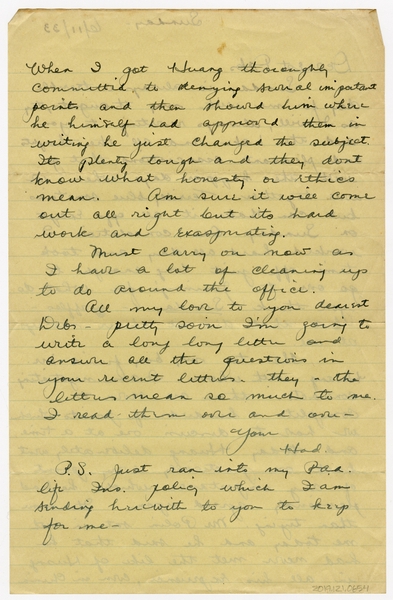 When I got Huang thoroughly
committed to denying several important
points and then showed him where
he himself had approved them in
writing he just changed the subject.
Its plenty tough and they dont
know what honesty or ethics
mean. Am sure it will come
out all right but its hard
work and exasperating.
Must carry on now as
I have a lot of cleaning up
to do around the office.
All my love to you dearest
Debs - pretty soon I'm going to
write a long long letter and
answer all the questions in
your recent letters. they - the
letters mean so much to me.
I read them over and over -
Your
Had.
P.S. Just ran into my Paa.
life Ins. policy which I am
sending herewith to you to keep
for me -